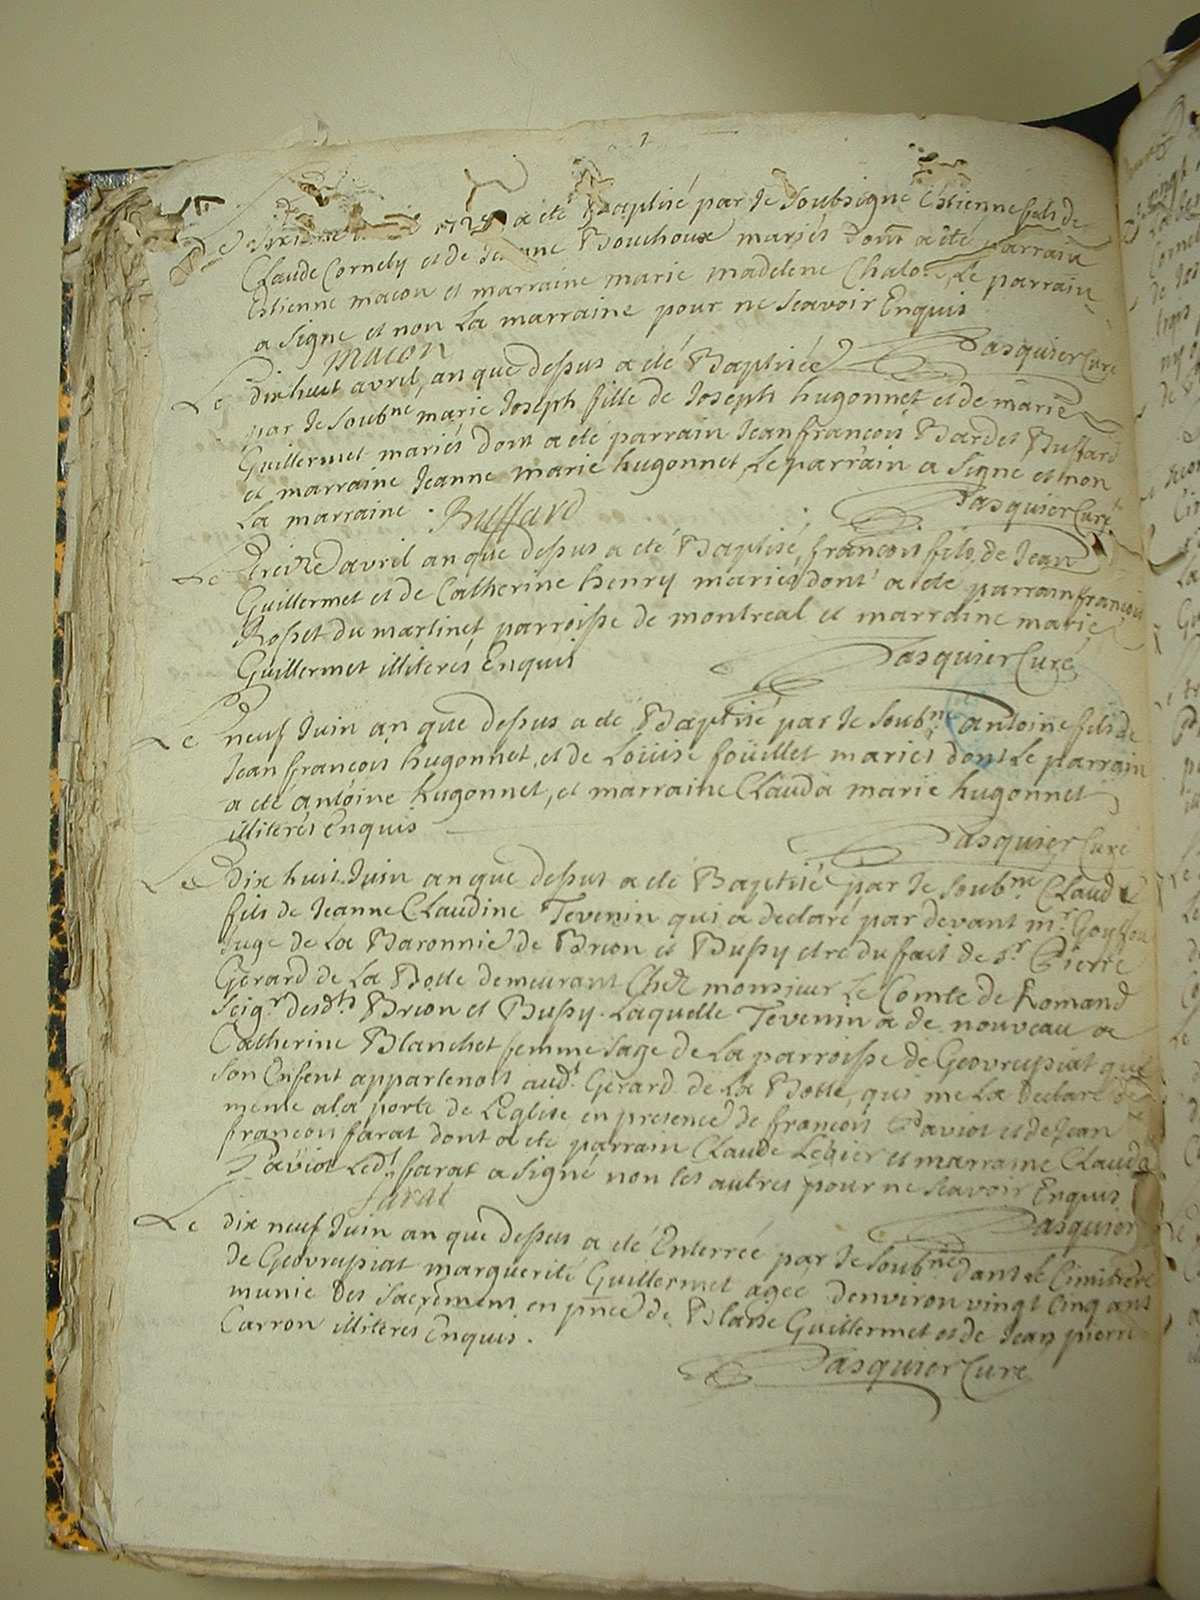 1
Le 1725 a eté Baptisé par Je Soubsigné Estienne fils de
Claude Cornely et de Jeanne Bouchoux mariés dont a été parrain
Estienne macon et marraine marie madelene Le parrain
a Signe et non La marraine pour ne Scavoir Enquis
macon
Pasquier Curé
Le Dix huit avril, an que dessus a eté Baptisée
par Je Soubne marie Joseph fille de Joseph hugonnet et de marie
Guillermet mariés dont a eté parrain Jean francois Bardet Buffard
et marraine Jeanne marie hugonnet, Le parrain a Signe et non
La marraine . Buffard
Pasquier Curé
Le Treize avril an que dessus a eté Baptisé francois fils de Jean
Guillermet et de Catherine henry mariés dont a eté parrain francois
Rosset du martinet parroisse de montreal et marraine marie
Guillermet illiterés Enquis
Pasquier Curé
Le neuf Juin an que dessus a eté Baptisé par Je Soubne antoine fils de
Jean francois hugonnet, et de Loüise foüillet mariés dont Le parrain
a eté antoine hugonnet, et marraine Clauda marie hugonnet
illiterés Enquis
Pasquier Curé
Le Dix huit Juin an que dessus a eté Baptisé par Je Soubne Claude
fils de Jeanne Claudine Tevenin qui a declaré par devant mr Goyffon
Juge de La Baronnie de Brion et Bussy etre du fait de Sr Pierre
Gerard de La Botte demeurant Chez monsieur Le Comte de Romand
Seigr desdts Brion et Bussy. Laquelle Tevenin a de nouveau a
Catherine Blanchet femme Sage de La parroisse de Geovressiat que
Son Enfent appartenoit audt Gerard de La Botte, qui me La declaré de
meme a La porte de L'Eglise en presence de francois Paviot et de Jean
francois farat dont a eté parrain Claude Legier et marraine Clauda
Paviot Ledt farat a Signé non les autres pour ne Scavoir Enquis
farat
Pasquier
Le dix neuf Juin an que dessus a eté Enterrée par Je Soubne dans Le Cimitiere
de Geovressiat marguerite Guillermet agée d'environ vingt Cinq ans
munie des Sacremens en pnce de Blaise Guillermet et de Jean pierre
Carron illiteres Enquis.
Pasquier Curé